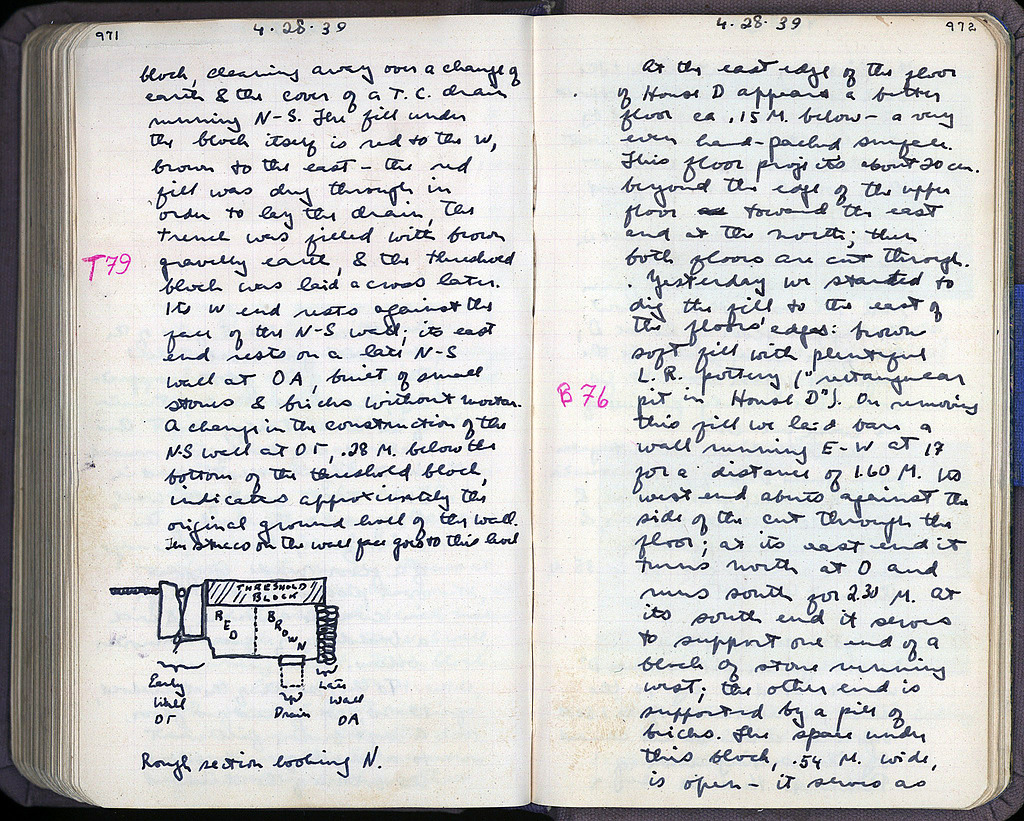 971
4.28.39
block, cleaning away over a change of
earth & the cover of a T.C. drain
running N-S. The fill under
the block itself is red to the W,
brown to the east – the red
fill was dug through in
order to lay the drain, the
trench was filled with brown
T79
gravelly earth, & the threshold
block was laid across later.
Its W end rests against the
face of the N-S wall, its east
end rests on a late N-S
wall at ΟΑ, built of small
stones & bricks without mortar.
A change in the construction of the
N-S wall at ΟΓ, .28 M. below the
bottom of the threshold block,
indicates approximately the
original ground level of the wall.
The stucco on the wall face goes to this level
THRESHOLD
BLOCK
RED
BROWN
Early
Wall
ΟΓ
Drain
Late
Wall
ΟΑ
Rough section looking N.
4.28.39
972
At the east edge of the floor
of House D appears a better
floor ca .15 M. below – a very
even hard-packed surface.
This floor projects about 20 cm.
beyond the edge of the upper
floor toward the east
and at the north, then
both floors are cut through.
Yesterday we started to
dig the fill to the east of
the floors' edges: brown
soft fill with plentiful
L.R. pottery ("rectangular
B 76
pit in House D"). On removing
this fill we laid bare a
wall running E-W at 17
for a distance of 1.60 M. Its
west end abuts against the
side of the cut through the
floor; at its east end it
turns north at Ο and
runs south for 2.30 M. At
its south end it serves
to support one end of a
block of stone running
west; the other end is
supported by a pile of
bricks. The space under
this block, .54 M. wide,
is open – it serves as